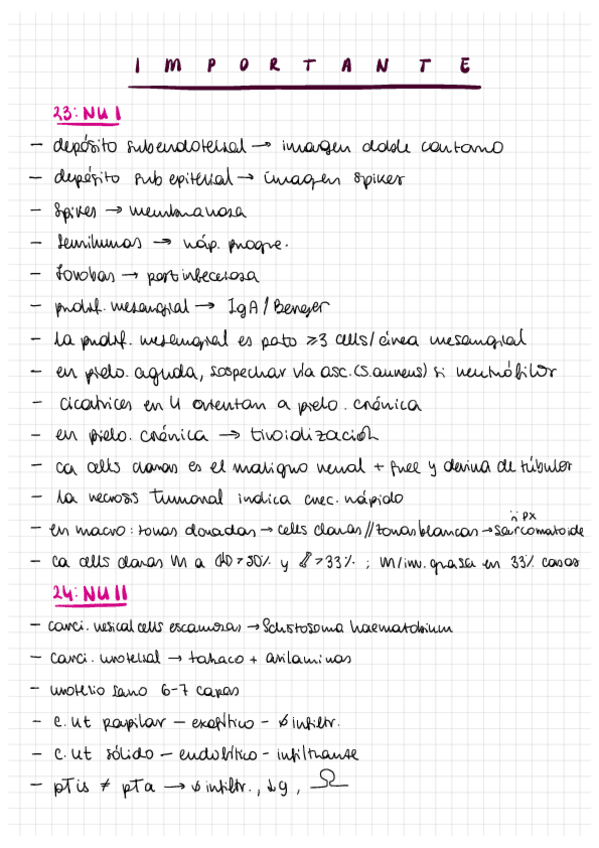 IMPORTANTE
23: NU I
- depósito subendotelial → imagen doble contorno
- depósito subepitelial → imagen spikes
- Spikes → membranosa
- Semilunas → ráp. progre.
- Jorobas → postinfecciosa
- prolif. mesangial → IgA / Berger
- La prolif. mesangial es pato ≥3 cells/área mesangial
- en pielo. aguda, sospechar vía asc. (S. aureus) si neutrófilos
- cicatrices en U orientan a pielo. crónica
- en pielo. crónica → tiroidización
- ca cells claras es el maligno renal + frec y deriva de túbulos
- La necrosis tumoral indica crec. rápido
- en macro: zonas doradas → cells claras // zonas blancas → sarcomatoide
:( px
- ca cells claras M a >50% y >33%; M/inv. grasa en 33% casos
24: NU II
- carci. vesical cells escamosas → Schistosoma haematobium
- Carci. urotelial → tabaco + arilaminas
- urotelio sano 6-7 capas
- C. ut papilar - exofítico - infiltr.
- C. ut sólido - endofítico - infiltrante
- pTis ≠ pTa → infiltr.,